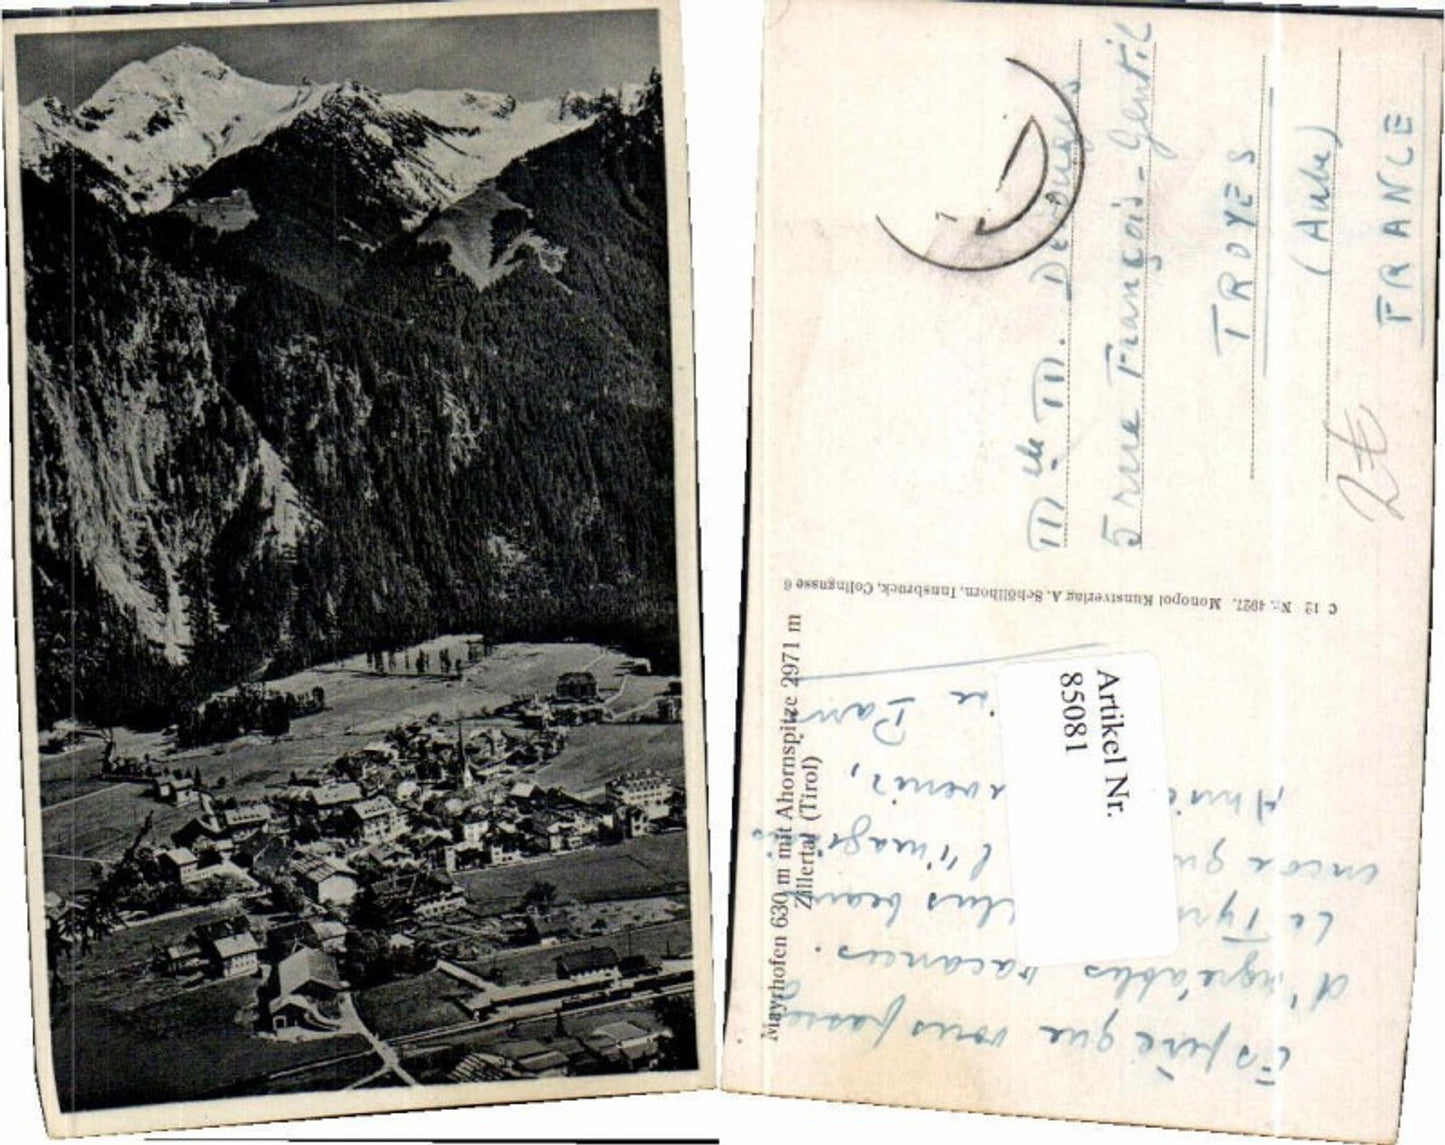 Mayrhofen 630 m mit Ahornspitze 2971 m
Zillertal (Tirol)
C 12 Nr. 4927. Monopol Kunstverlag A. Schöllhorn, Innsbruck, Colingasse 6
Artikel Nr.
85081
J'espère que vous passez
d'agréables vacances.
Le Tyr plus beau
encore que l'imagi
Ami avenir,
de Pam
Mlle M.
5 rue François-Gentil
TROYES
(Aube)
FRANCE
2€